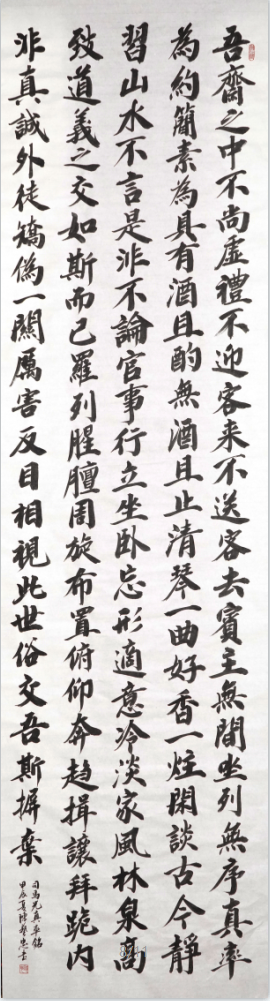 吾齋之中不尚虛禮不迎客来不送客去賓主無間坐列無序真率
為約簡素為具有酒且酌無酒且止清琴一曲好香一炷閑談古今靜
習山水不言是非不論官事行立坐卧忘形適意冷淡家風林泉高
致道義之交如斯而已羅列腥膻周旋布置俯仰奔趨揖讓拜跪内
非真誠外徒矯偽一關厲害反目相視此世俗交吾斯摒棄
司馬光真率銘
甲辰夏